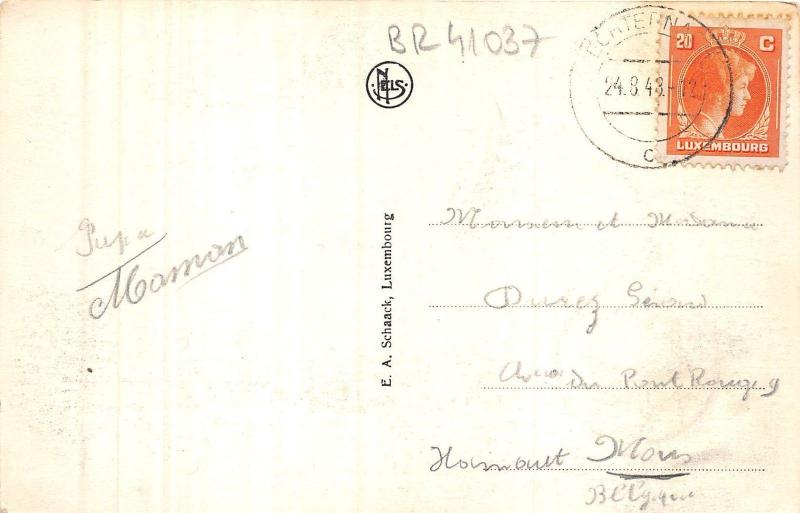 BR 41037
NELS
ECHTERNA
24.8.48.-
C
20 C
LUXEMBOURG
Papa
Maman
E. A. Schaack, Luxembourg
Monsieur et Madame
Durez Gérard
du Pont Rouge 9
Hainaut Mons
Belgique